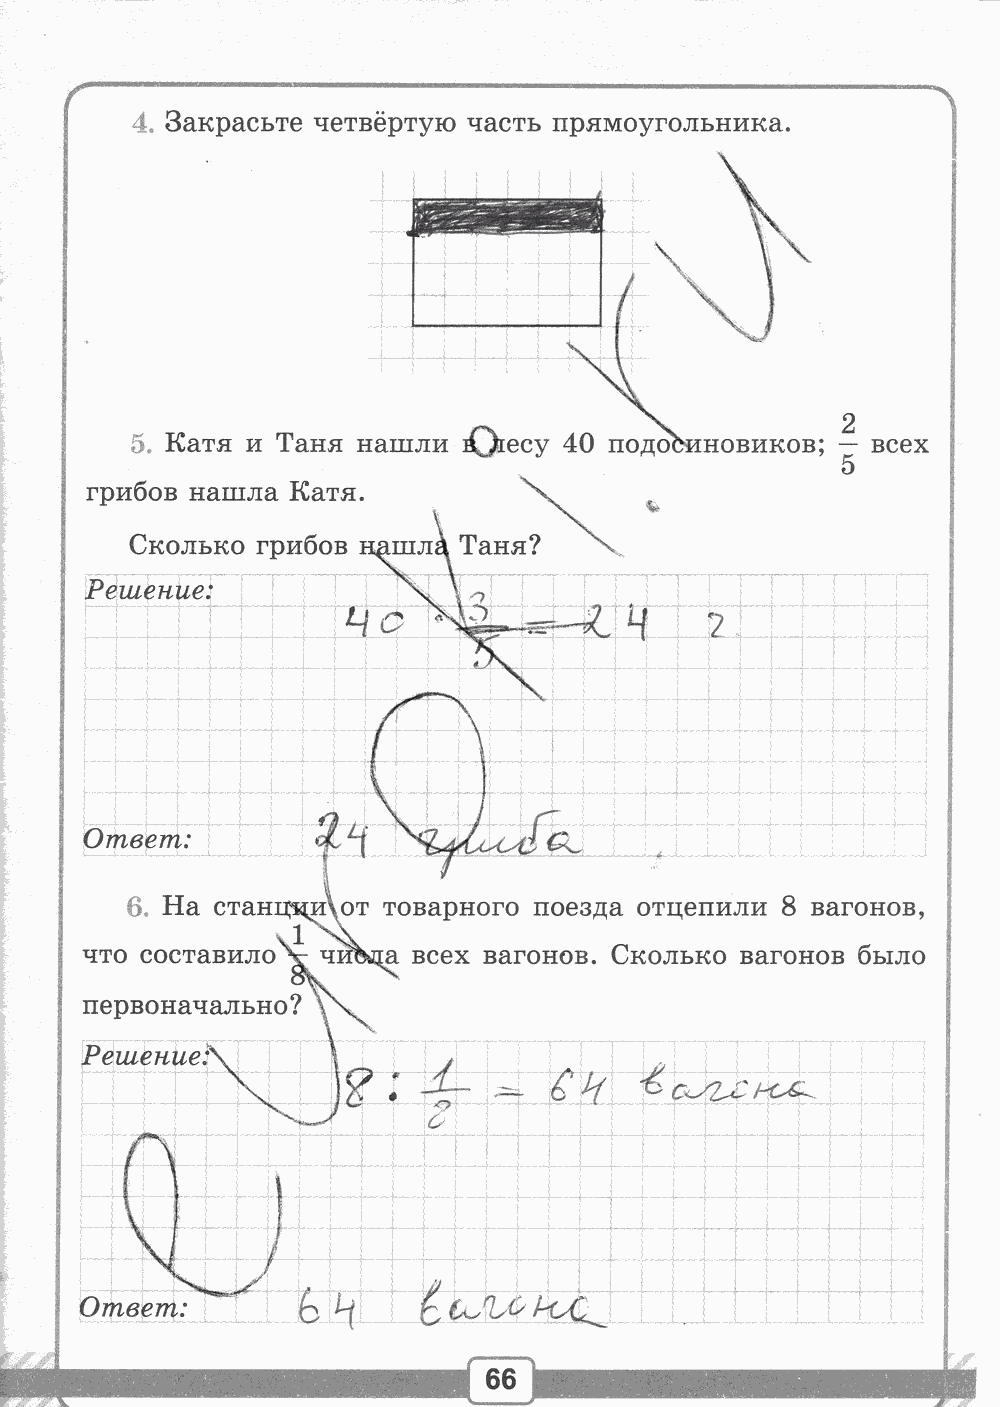 4. Закрасьте четвёртую часть прямоугольника.
5. Катя и Таня нашли в лесу 40 подосиновиков; 2/5 всех
грибов нашла Катя.
Сколько грибов нашла Таня?
Решение:
40 · 3/5 = 24 г
Ответ: 24 гриба
6. На станции от товарного поезда отцепили 8 вагонов,
что составило 1/8 числа всех вагонов. Сколько вагонов было
первоначально?
Решение: 8 : 1/8 = 64 вагона
Ответ: 64 вагона
66